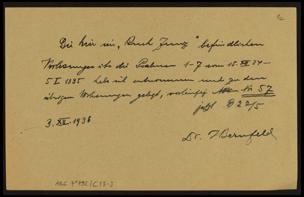 Die hier in „Buch Jung" befindlichen
Vorlesungen üb. die Psalmen 1-7 vom 15.XII.34-
5.I.1935 habe ich entnommen und zu den
übrigen Vorlesungen gelegt, vorläufig Nr. 57
jetzt B 22/5
3.XII.1936
Dr. I Bernfeld